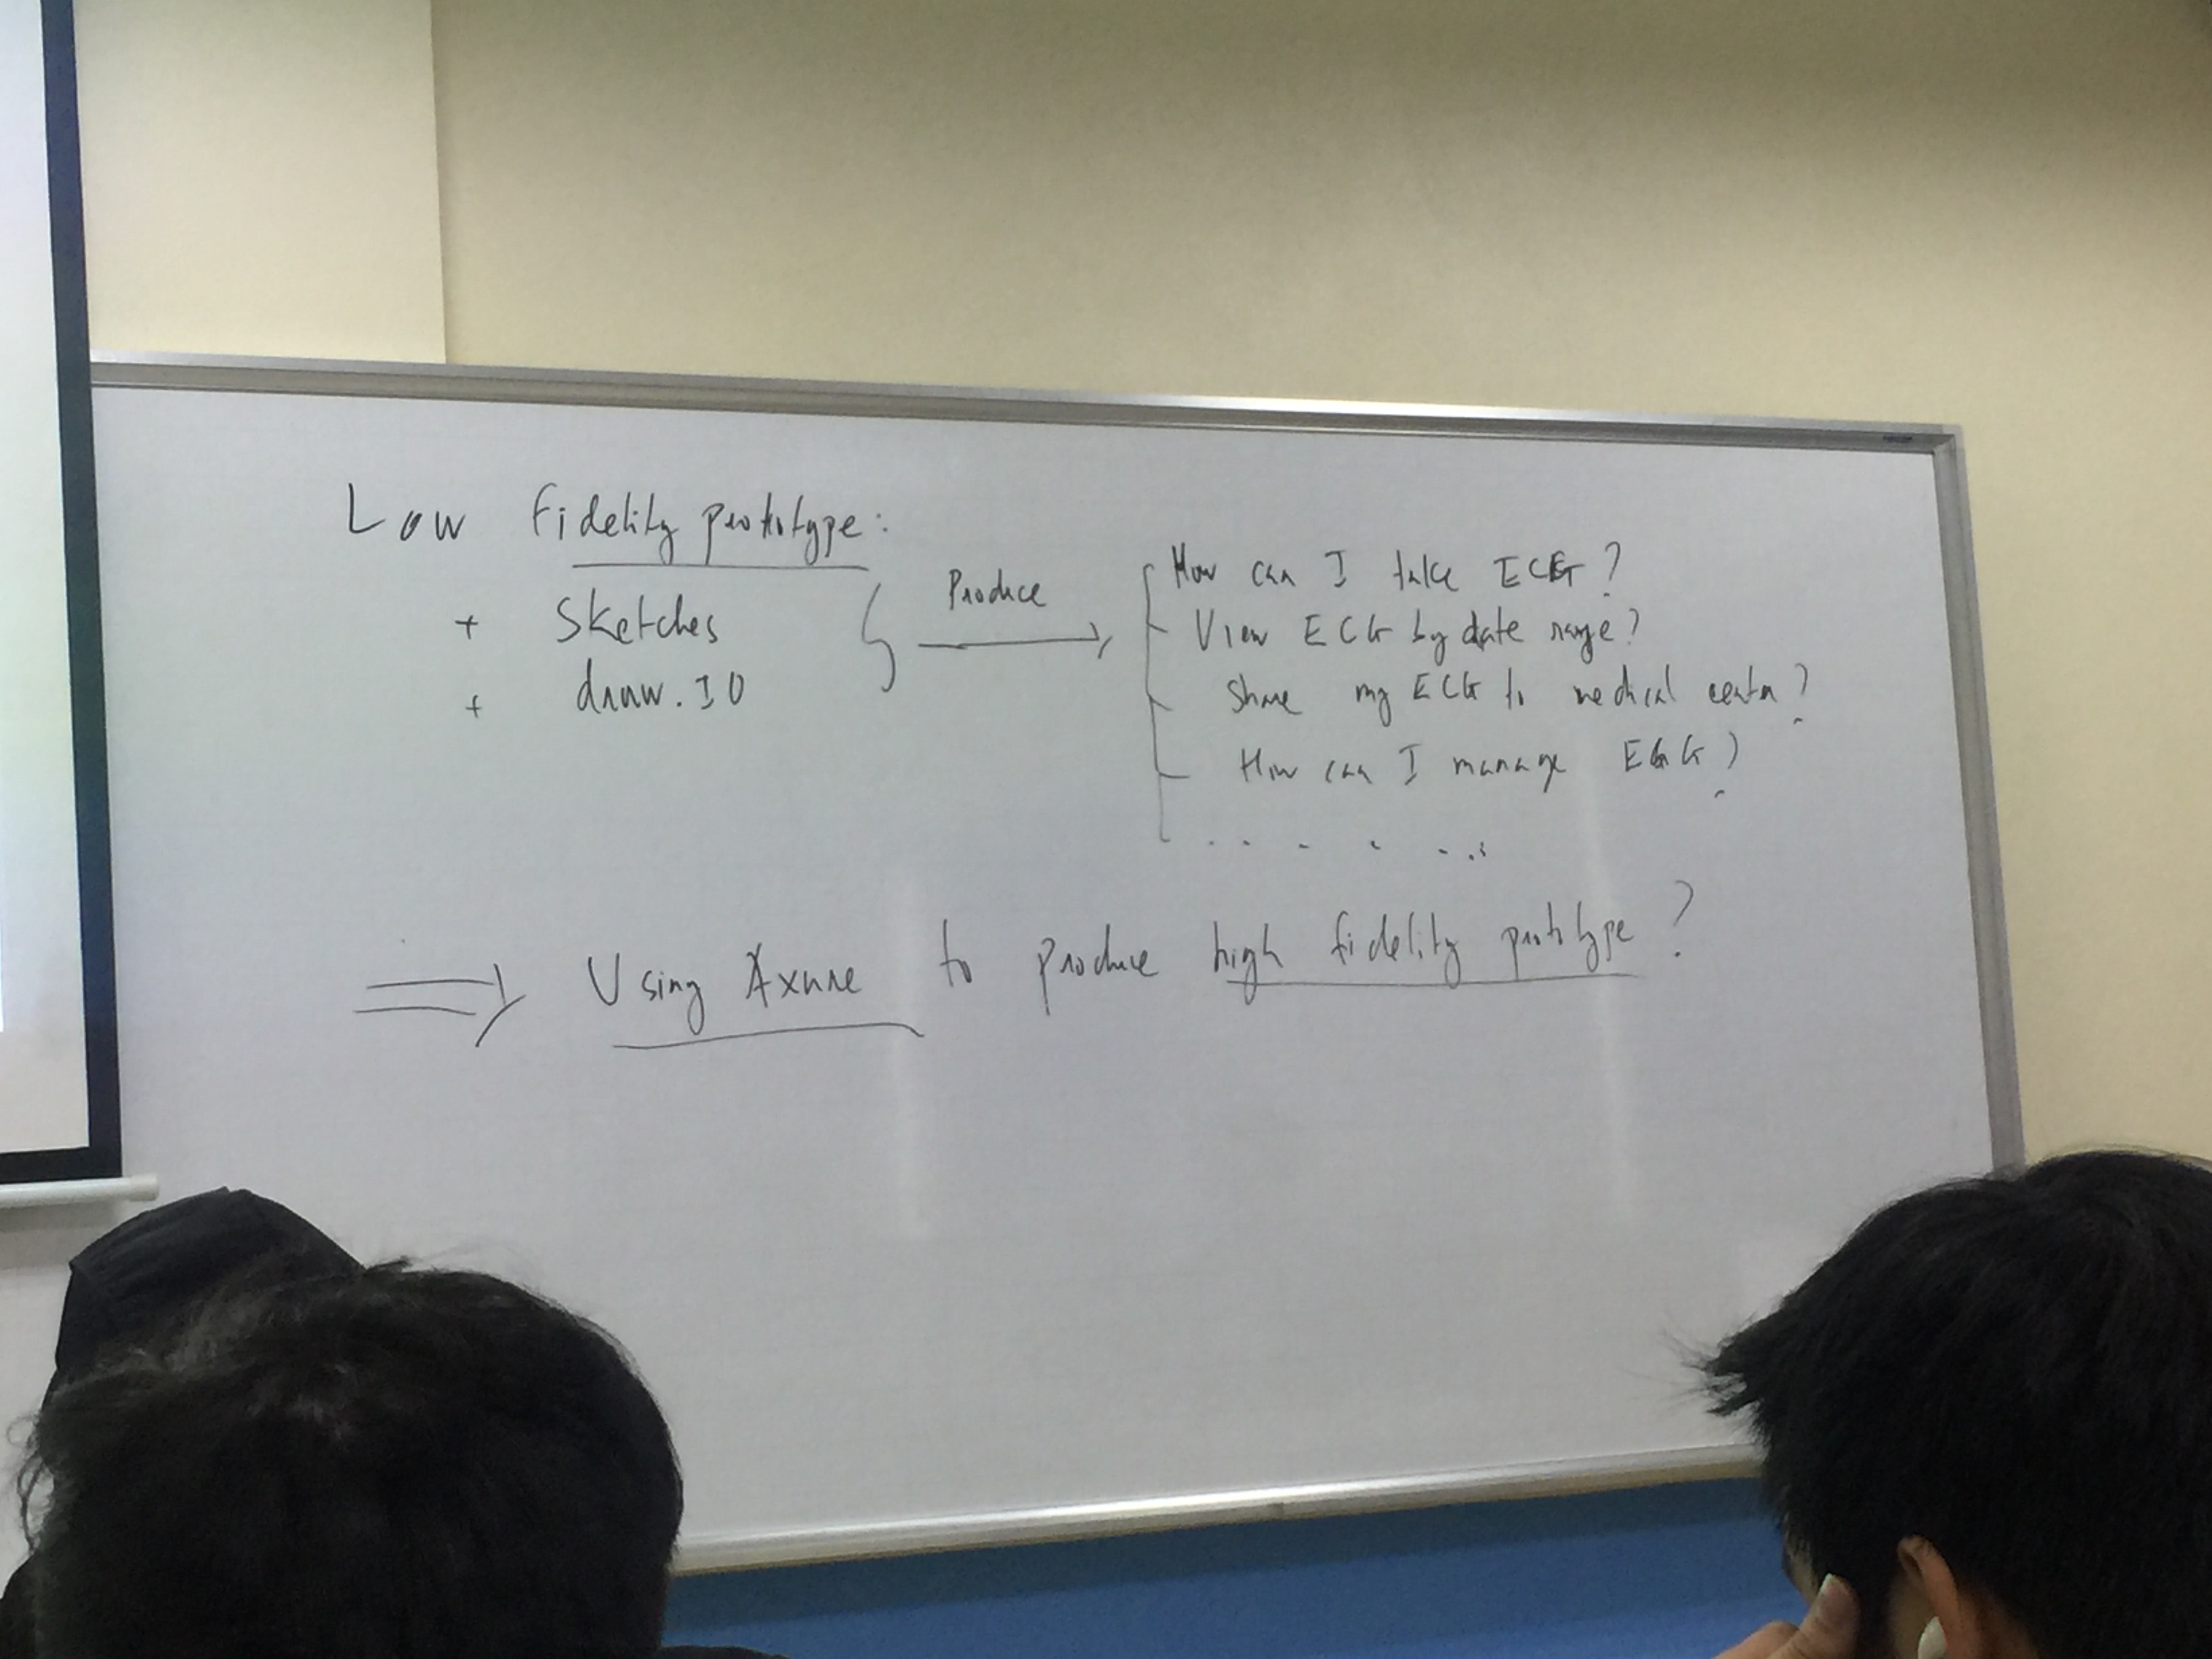 Low fidelity prototype:
+ Sketches
+ draw.IO
Produce
How can I take ECG?
View ECG by date range?
Share my ECG to medical center?
How can I manage ECG?
. . . . . .
⇒ Using Axure to produce high fidelity prototype?